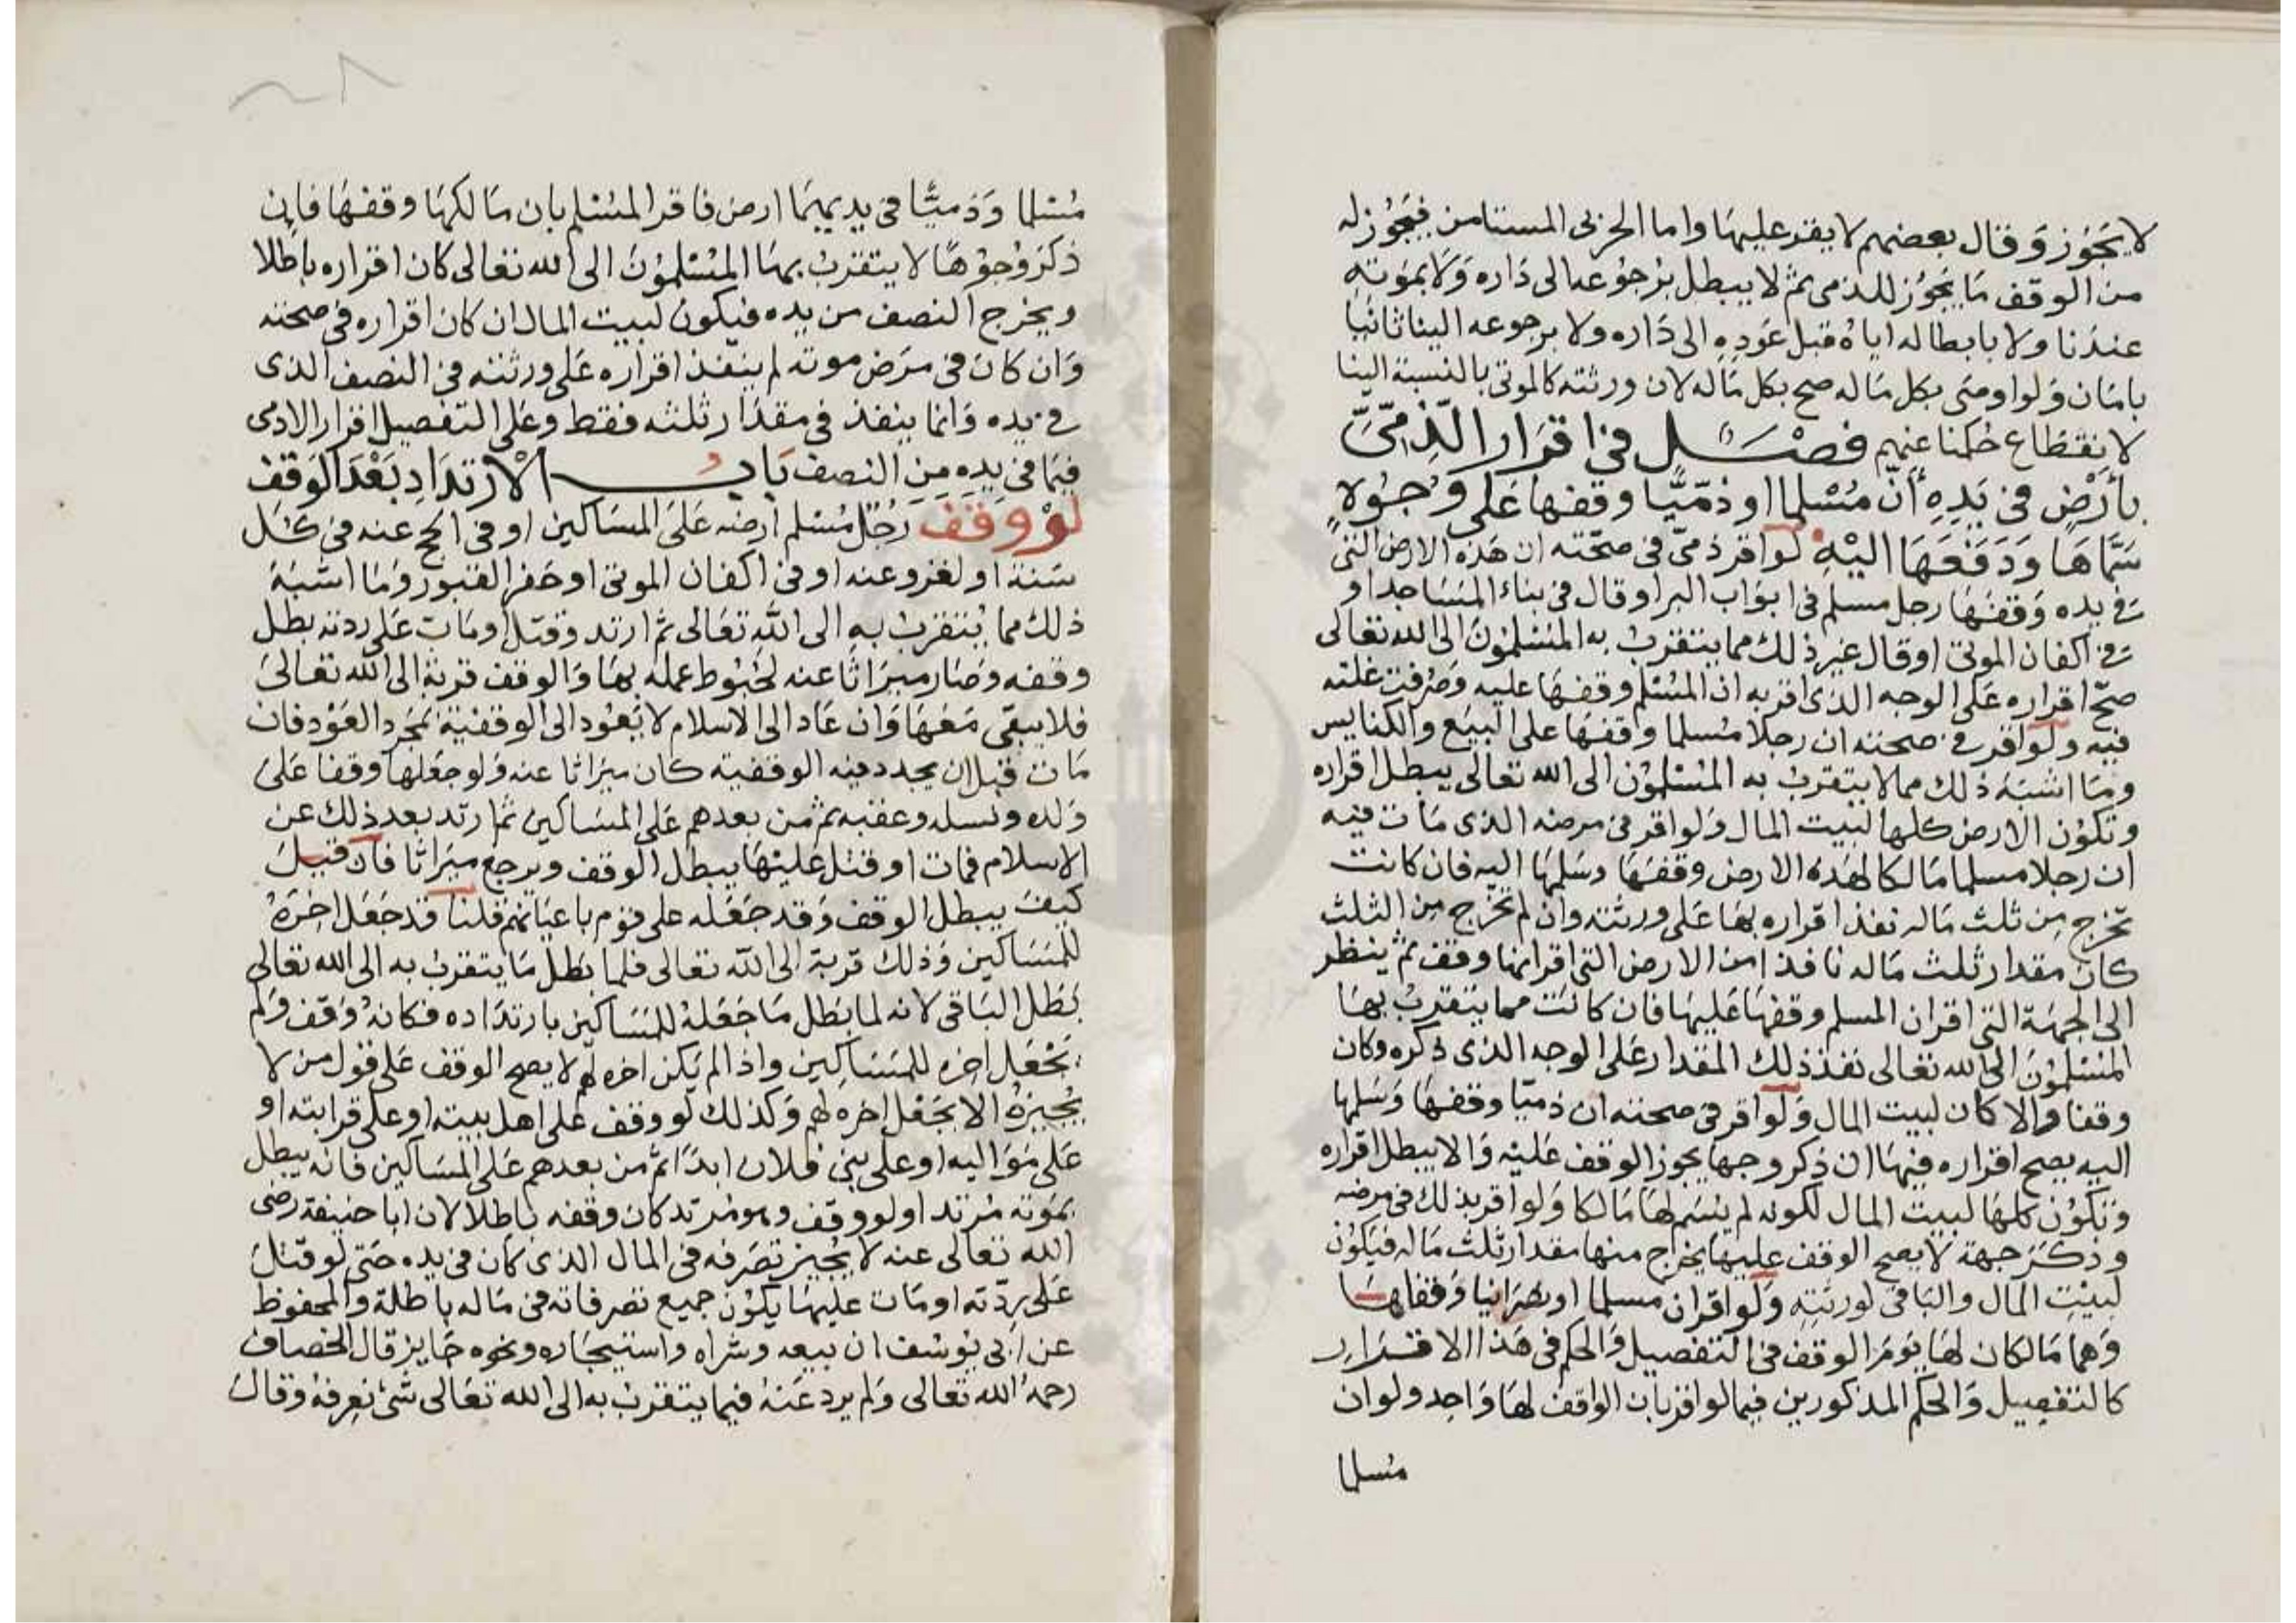 لا يَجُوز وَقال بعضهم لا يقر عليها واما الحربى المستامن فيَجُوز له
من الوقف مَا يَجُوز للذمى ثم لا يبطل برجوعه الى دَاره وَلا بموته
عندنا ولا بابطاله اياه قبل عَودِه الى دَاره ولا برجوعه الينا ثانيا
بامَان وَلو اوصَى بكل مَاله صح بكل مَاله لان ورثته كالموتى بالنسبة الينا
لانقطاع حكمنا عنهم فصْل فى اقرَار الذِّمِّىِّ
بأرْضٍ فى يَدِهِ أنّ مُسْلما او ذمّيًّا وقفها عَلى وُجُوهٍ
سَمَّاهَا وَدَفَعَهَا اليْهِ لو اقر ذمىّ فى صحّته ان هَذه الارض التى
فى يده وَقفهَا رجل مسلم فى ابوَاب البر او قال فى بناء المسَاجد او
فى اكفان الموتى او قال غير ذلك مما يتقرب به المسْلمونَ الى الله تعالى
صحّ اقراره عَلى الوجه الذى اقر به ان المسْلم وقفهَا عليه وَصُرفت غلته
فيه ولو اقر فى صحته ان رجلا مُسلما وقفهَا على البيَع والكنايس
ومَا اشبَه ذلك مما لا يتقرب به المسْلمون الى الله تعالى يبطل اقراره
وتكوُن الارض كلها لبيت المال وَلو اقر فى مرضه الذى مَات فيه
ان رجلا مسلما مَالكا لهذه الارض وقفهَا وسَلمهَا اليه فان كانت
تخرج مِن ثلث مَاله نفذ اقراره بهَا عَلى ورثته وان لم تخرج مِن الثلث
كان مقدار ثلث مَاله نافذا من الارض التى اقر انها وقف ثم ينظر
الى الجهَة التى اقر ان المسلم وقفهَا عَليهَا فان كانت مما يتقرب بهَا
المسْلموُنَ الى الله تعالى نفذ ذلك المقدار عَلى الوجه الذى ذكره وكان
وقفا والا كان لبيت المال وَلو اقر فى صحته ان ذميّا وقفهَا وَسَلمها
اليه يصح اقراره فيهَا ان ذكر وجها يجوز الوقف عَليْه وَالا يبطل اقراره
وتكوُن كلهَا لبيت المال لكونه لم يسَم لهَا مَالكا وَلو اقر بذلك فى مرضه
وذكَر جهة لا يصح الوقف عليهَا يخرج منها مقدار ثلث مَاله فيَكوُن
لبيْتِ المال والبَاقى لورثتِهِ وَلو اقر ان مسلما او نصْرَانيا وَقفاهَا
وَهما مَالكان لهَا يَومَ الوقف فى التفصيل وَالحكم فى هَذا الاقرَار
كالتفصِيل وَالحكم المذكورين فيما لو اقر بان الواقف لهَا وَاحِد ولو ان
مُسلما
مُسْلما وَذميًّا فى يديهمَا ارض فاقر المسْلم بان مَالكهَا وقفهَا فان
ذكَرَ وُجوُهًا لا يتقرب بهَا المسْلموُنَ الى الله تعَالى كان اقراره باطلا
ويخرج النصف من يده فيكون لبيت المال ان كان اقراره فى صحته
وَان كان فى مَرَض موته لم ينفذ اقراره عَلى ورثته فى النصف الذى
فى يده وَانما ينفذ فى مقدَار ثلثه فقط وعَلى التفصيل اقرار الذمى
فيمَا فى يده من النصف بَابُ الْارْتدَادِ بَعْدَ الوَقف
لوْ وَقَفَ رَجُل مُسْلم أرضه عَلىَ المسَاكين او فى الحج عنه فى كل
سَنة او لغزو عنه او فى اكفان الموتى او حَفر القبور وَمَا اشبَهَ
ذلك مما يُتقرب به الى الله تعَالى ثم ارتد وقتل او مَات عَلى ردته بطل
وقفه وَصَار ميرَاثا عنه لحُبُوط عمله بهَا وَالوقف قربة الى الله تعَالىَ
فلا يبقى مَعَهَا وَان عَاد الى الاسلام لا يَعُود الى الوقفية بمجرد العَوْد فان
مَات قبل ان يجدد فيه الوقفيته كان ميرَاثا عنه وَلو جعَلها وقفا عَلى
وَلده ونسله وعقبه ثم من بعدهم عَلى المسَاكين ثم ارتد بعد ذلك عن
الاسلام فمات او قتل عَليْهَا يبطل الوقف ويرجع ميرَاثا فان قيلَ
كيفَ يبطل الوقف وَقد جَعَله على قوم باعيَانهم قلنا قد جَعَل اخرَهُ
للمسَاكين وَذلك قربة الى الله تعالى فلما بَطل مَا يتقرب به الى الله تعَالى
بَطل البَاقى لانه لما بَطل مَا جَعَلهُ للمسَاكين بارتدَاده فكانهُ وَقف وَلم
يَجْعَل اخره للمسَاكين واذا لم يكن اخره لهم لا يصح الوقف عَلى قول من لا
يُجيزهُ الا بجَعْل اخره لهم وَكذلك لو وقف على اهل بيته او على قرابته او
عَلى مَوَاليه او على بنى فلان ابدًا ثم من بعدهم عَلى المسَاكين فانه يبطل
بموته مُرتد او لو وقف وهو مُرتد كان وقفه باطلا لان ابا حنيفة رضى
الله تعالى عنه لا يُجيز تصَرفه فى المال الذى كان فى يده حَتى لو قتلَ
عَلى رِدّته او مَات عليهَا يكوُن جميع تصرفاته فى مَاله باطلة وَالمحفوظ
عن ابى يوُسُف ان بيعه وشراه واستيجَاره ونحوه جَايز قال الخصاف
رحمهُ الله تعَالى وَلم يرد عَنهُ فيما يتقرب به الى الله تعَالى شئ نعرفهُ وقال